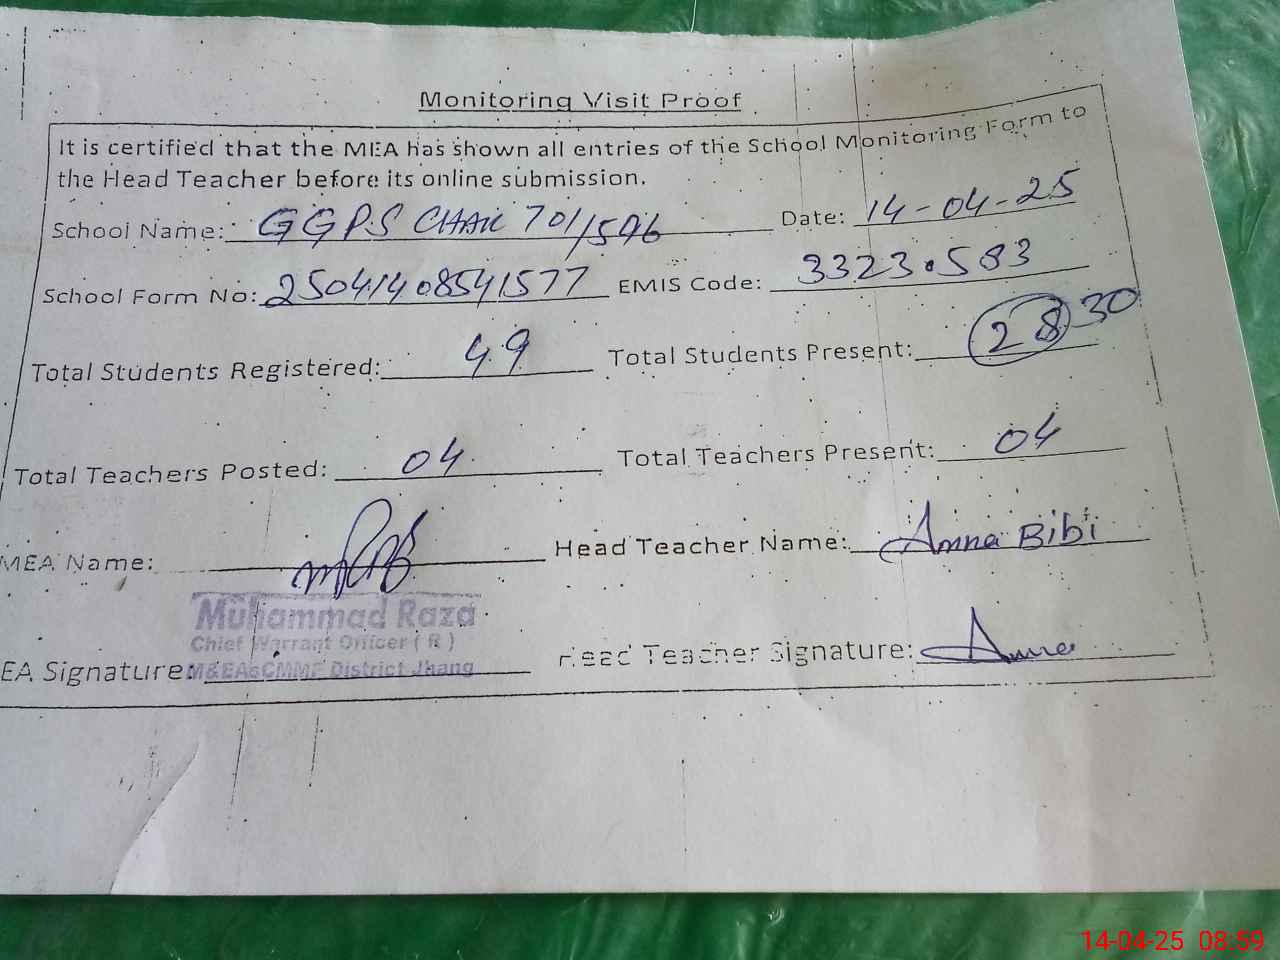 Monitoring Visit Proof
It is certified that the MEA has shown all entries of the School Monitoring Form to
the Head Teacher before its online submission.
School Name: GGPS CHAK 701/596 Date: 14-04-25
School Form No: 25041408541577 EMIS Code: 33230583
Total Students Registered: 49 Total Students Present: 28 30
Total Teachers Posted: 04 Total Teachers Present: 04
MEA Name: Head Teacher Name: Amna Bibi
Muhammad Raza
Chief Warrant Officer ( R )
EA Signature: M&EAsCMMF District Jhang Head Teacher Signature: Amna
14-04-25 08:59